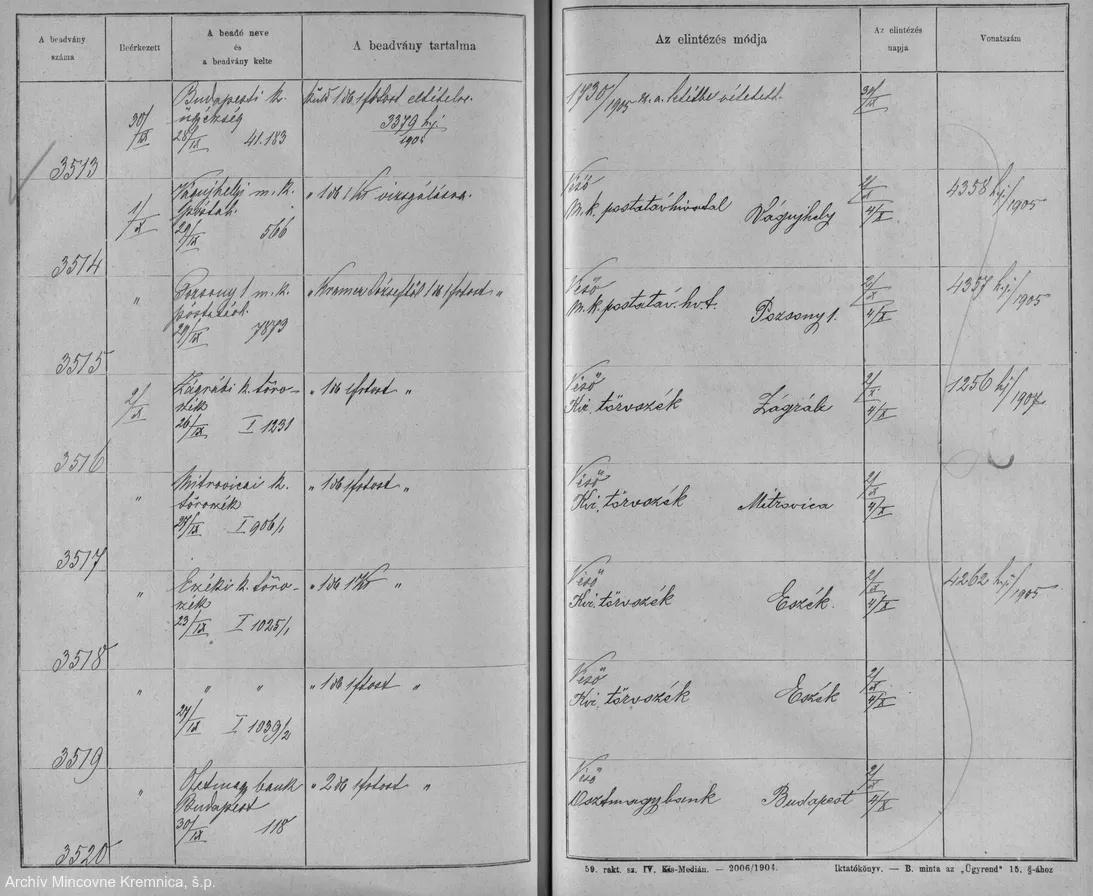 A beadvány
száma
Beérkezett
A beadó neve
és
a beadvány kelte
A beadvány tartalma
3513
30/IX
Budapesti k.
ügyészség
28/IX 41.183
1 db 1 frtost
3379 hj.
1905
3514
1/X
Vágujhelyi m. k.
29/IX 566
„ 1 db 1 Kr vizsgálásra.
3515
„
Pozsony 1 m. k.
29/IX 7873
„ 1 db 1 frtost „
3516
2/X
Zágrábi k. törv-
szék
26/IX I 1231
„ 1 db 1 frtost „
3517
„
Mitrovicai k.
törvszék
27/IX I 906/1
„ 1 db 1 frtost „
3518
„
Eszéki k. törv-
szék
23/IX I 1025/1
„ 1 db 1 Kr „
3519
„
„ „
27/IX I 1039/2
„ 1 db 1 frtost „
3520
„
Osztmagy bank
Budapest
30/IX 118
„ 2 db 1 frtost „
Az elintézés módja
Az elintézés
napja
Vonatszám
1730/1905 sz. a. letétbe vétetett.
30/IX
Véső
M. k. postatávhivatal Vágujhely
2/X
4/X
4358 hj/1905
Véső
M. k. postatáv. hvt. Pozsony 1.
2/X
4/X
4357 hj/1905
Véső
Kir. törvszék Zágráb
2/X
4/X
1256 hj/1907
Véső
Kir. törvszék Mitrovica
2/X
4/X
Véső
Kir. törvszék Eszék.
2/X
4/X
4262 hj/1905
Véső
Kir. törvszék Eszék
2/X
4/X
Véső
Osztmagybank Budapest
2/X
4/X
59. rakt. sz. IV. Kis-Medián. — 2006/1904.
Iktatókönyv. — B. minta az „Ügyrend" 15. §-ához
Archív Mincovne Kremnica, š.p.